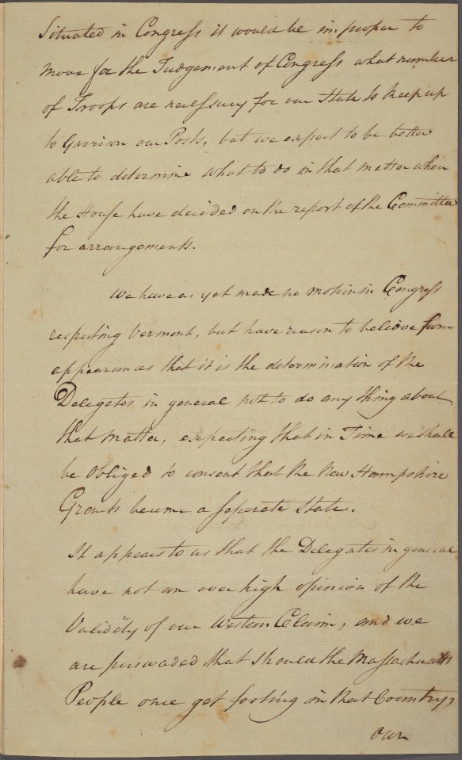 Situated in Congress it would be improper to
move for the Judgement of Congress what number
of Troops are necessary for our State to keep up
to Garrison our Posts, but we expect to be better
able to determine what to do in that matter when
the House have decided on the report of the Committee
for arrangements.
We have as yet made no motion in Congress
respecting Vermont, but have reason to believe from
appearances that it is the determination of the
Delegates in general not to do any thing about
that Matter, expecting that in Time we shall
be Obliged to consent that the New Hampshire
Grants became a seperate State.
It appears to us that the Delegates in general
have not an over high opinion of the
Validity of our Western Claim, and we
are perswaded that should the Massachusetts
People once get footing in that Country,
our